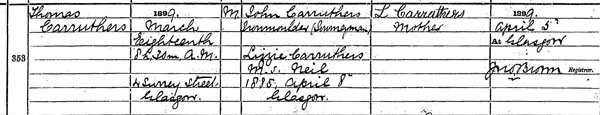 353
Thomas
Carruthers
1889.
March
Eighteenth
8h. 35m. A.M.
4 Surrey Street,
Glasgow.
M
John Carruthers
Ironmoulder (Journeyman)
Lizzie Carruthers
M.S. Neil
1885, April 8th
Glasgow.
L Carruthers
Mother
1889.
April 5th
At Glasgow
Jno. Brown
Registrar.